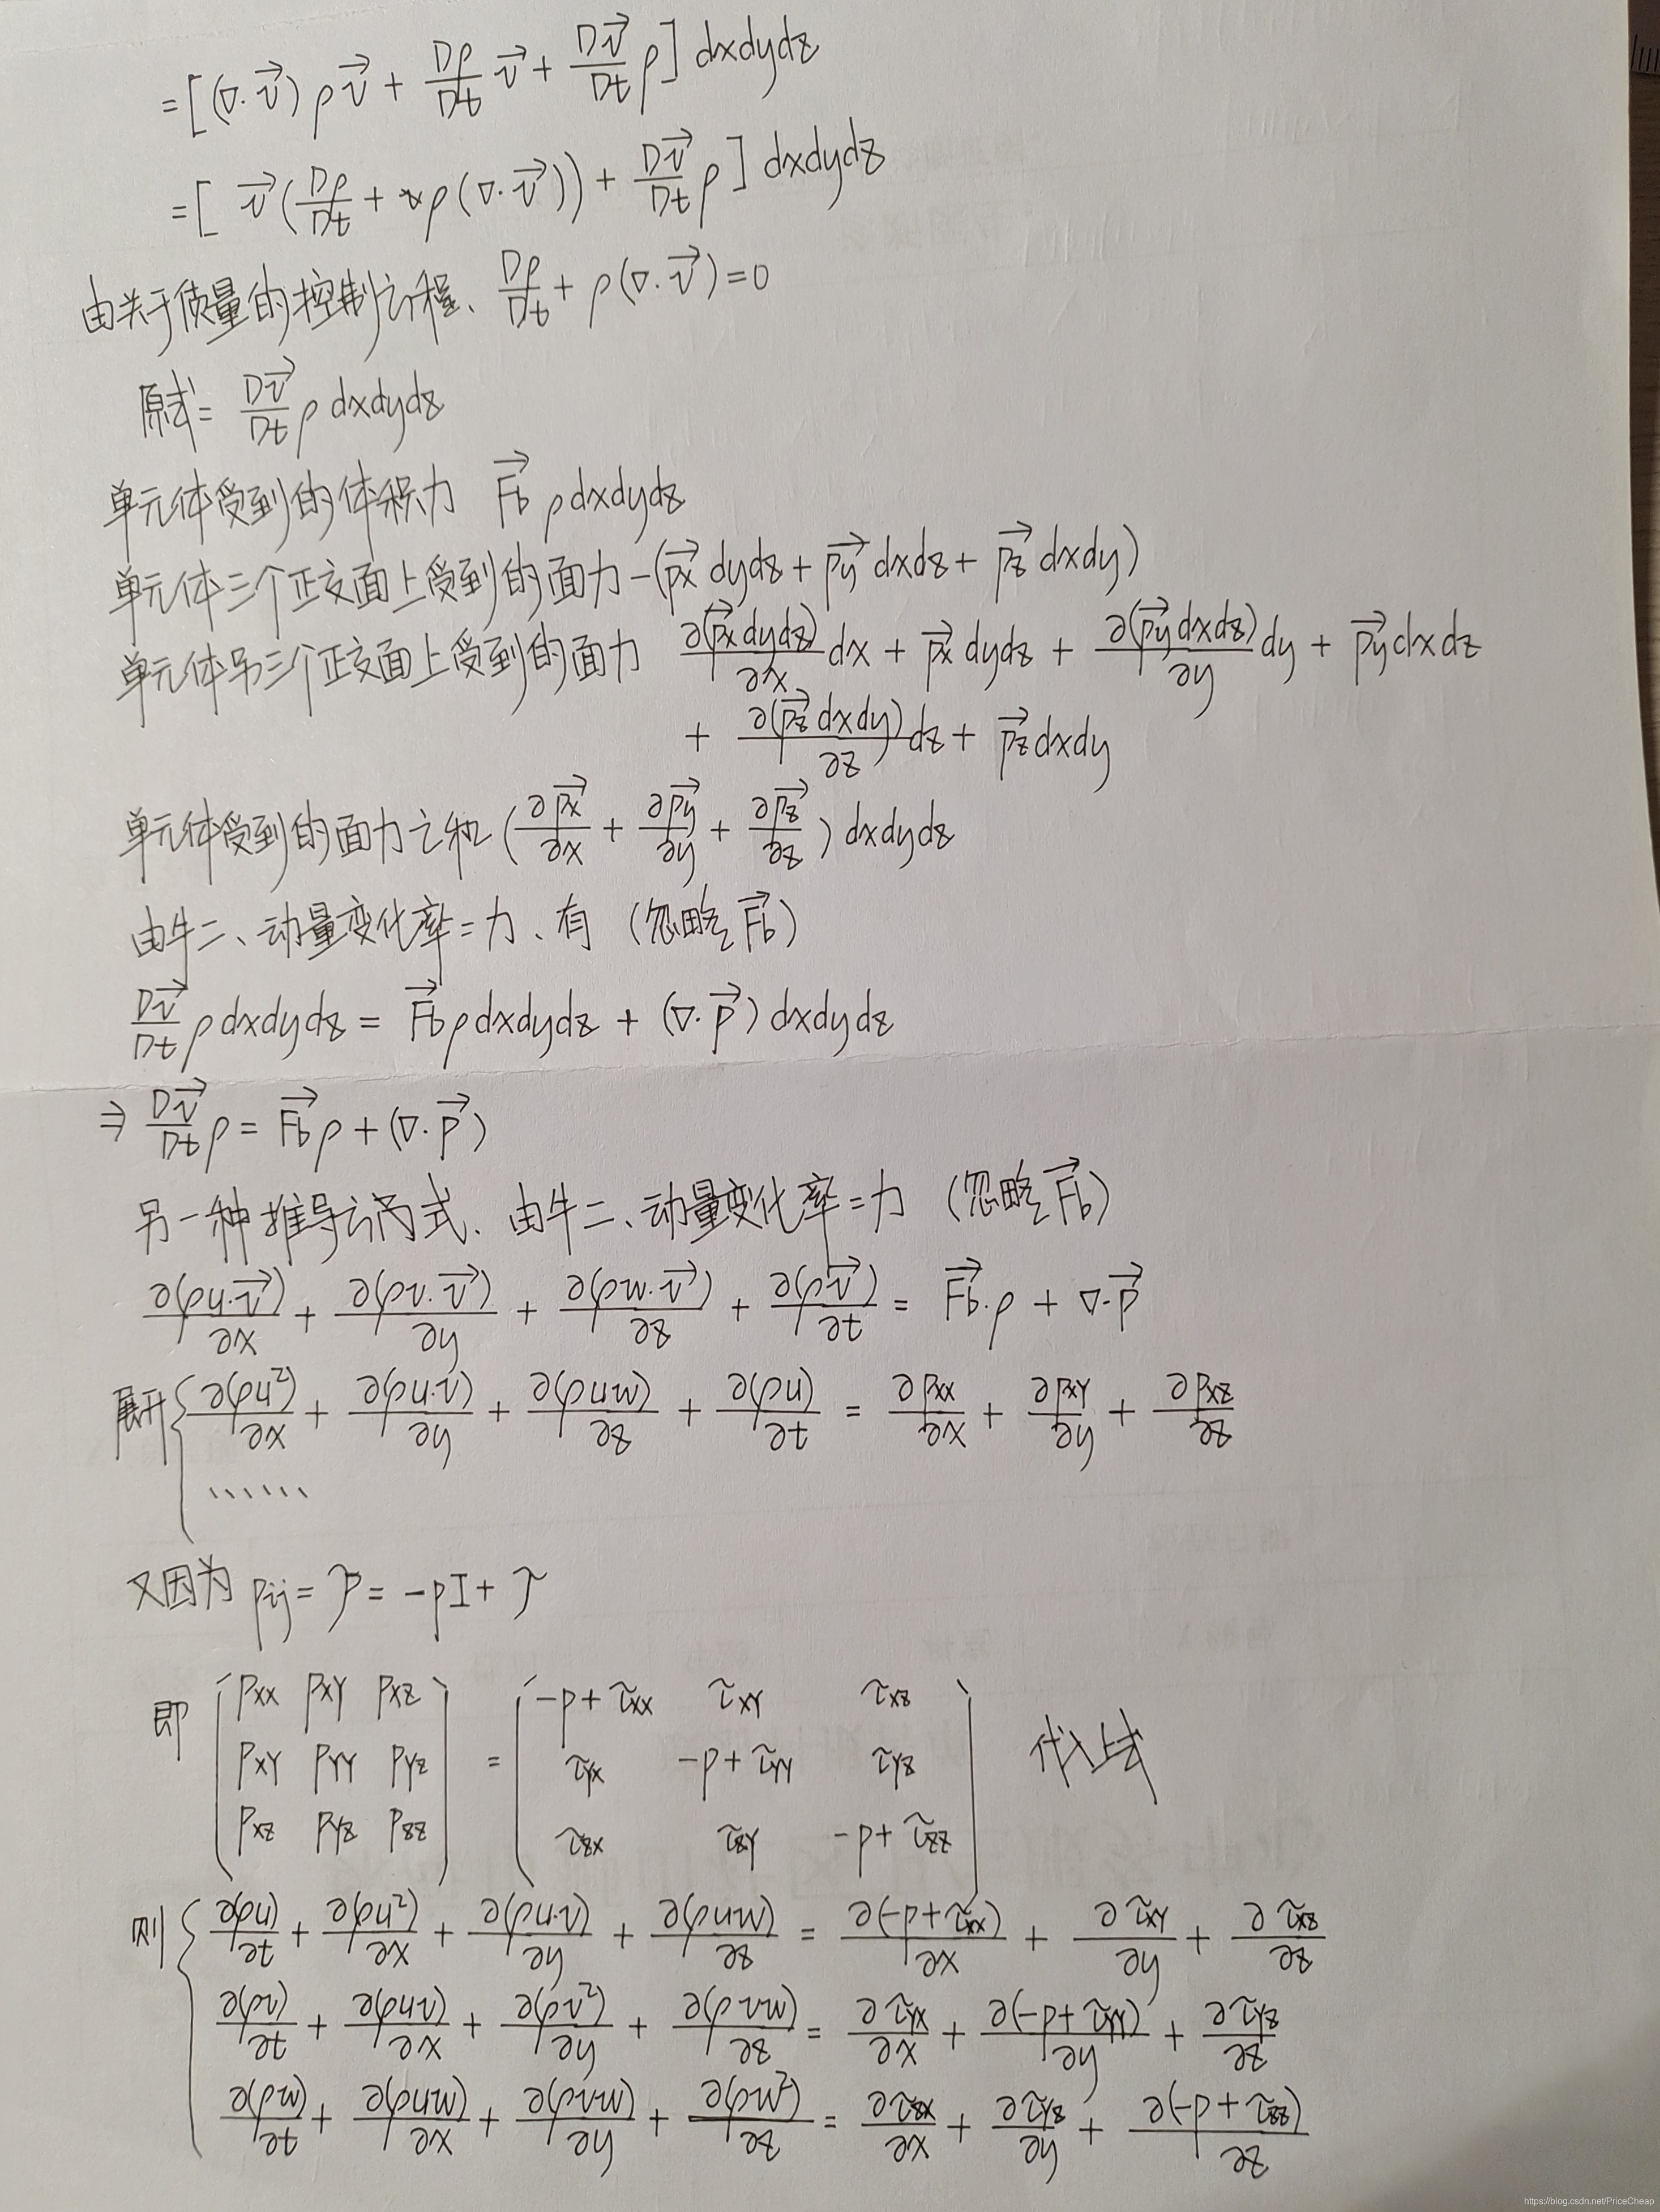 =[(∇·v⃗)ρv⃗ + Dρ/Dt v⃗ + Dv⃗/Dt ρ] dxdydz
=[ v⃗(Dρ/Dt + ρ(∇·v⃗)) + Dv⃗/Dt ρ ] dxdydz
由关于质量的控制方程、 Dρ/Dt + ρ(∇·v⃗)=0
原式= Dv⃗/Dt ρ dxdydz
单元体受到的体积力 F⃗b ρdxdydz
单元体三个正交面上受到的面力 -(p⃗x dydz + p⃗y dxdz + p⃗z dxdy)
单元体另三个正交面上受到的面力 ∂(p⃗x dydz)/∂x dx + p⃗x dydz + ∂(p⃗y dxdz)/∂y dy + p⃗y dxdz
+ ∂(p⃗z dxdy)/∂z dz + p⃗z dxdy
单元体受到的面力之和 (∂p⃗x/∂x + ∂p⃗y/∂y + ∂p⃗z/∂z) dxdydz
由牛二、动量变化率=力、有 (忽略F⃗b)
Dv⃗/Dt ρ dxdydz = F⃗b ρ dxdydz + (∇·p⃗) dxdydz
⇒ Dv⃗/Dt ρ = F⃗b ρ + (∇·p⃗)
另一种推导方式、由牛二、动量变化率=力 (忽略F⃗b)
∂(ρu·v⃗)/∂x + ∂(ρv·v⃗)/∂y + ∂(ρw·v⃗)/∂z + ∂(ρv⃗)/∂t = F⃗b·ρ + ∇·p⃗
展开{ ∂(ρu²)/∂x + ∂(ρu·v)/∂y + ∂(ρuw)/∂z + ∂(ρu)/∂t = ∂pxx/∂x + ∂pxy/∂y + ∂pxz/∂z
......
又因为 pij = P = -pI + τ
即 ( pxx pxy pxz ) = ( -p+τxx τxy τxz )
( pxy pyy pyz ) ( τyx -p+τyy τyz ) 代入上式
( pxz pyz pzz ) ( τzx τzy -p+τzz )
则{ ∂(ρu)/∂t + ∂(ρu²)/∂x + ∂(ρu·v)/∂y + ∂(ρuw)/∂z = ∂(-p+τxx)/∂x + ∂τxy/∂y + ∂τxz/∂z
∂(ρv)/∂t + ∂(ρuv)/∂x + ∂(ρv²)/∂y + ∂(ρvw)/∂z = ∂τyx/∂x + ∂(-p+τyy)/∂y + ∂τyz/∂z
∂(ρw)/∂t + ∂(ρuw)/∂x + ∂(ρvw)/∂y + ∂(ρw²)/∂z = ∂τzx/∂x + ∂τyz/∂y + ∂(-p+τzz)/∂z
https://blog.csdn.net/PriceCheap